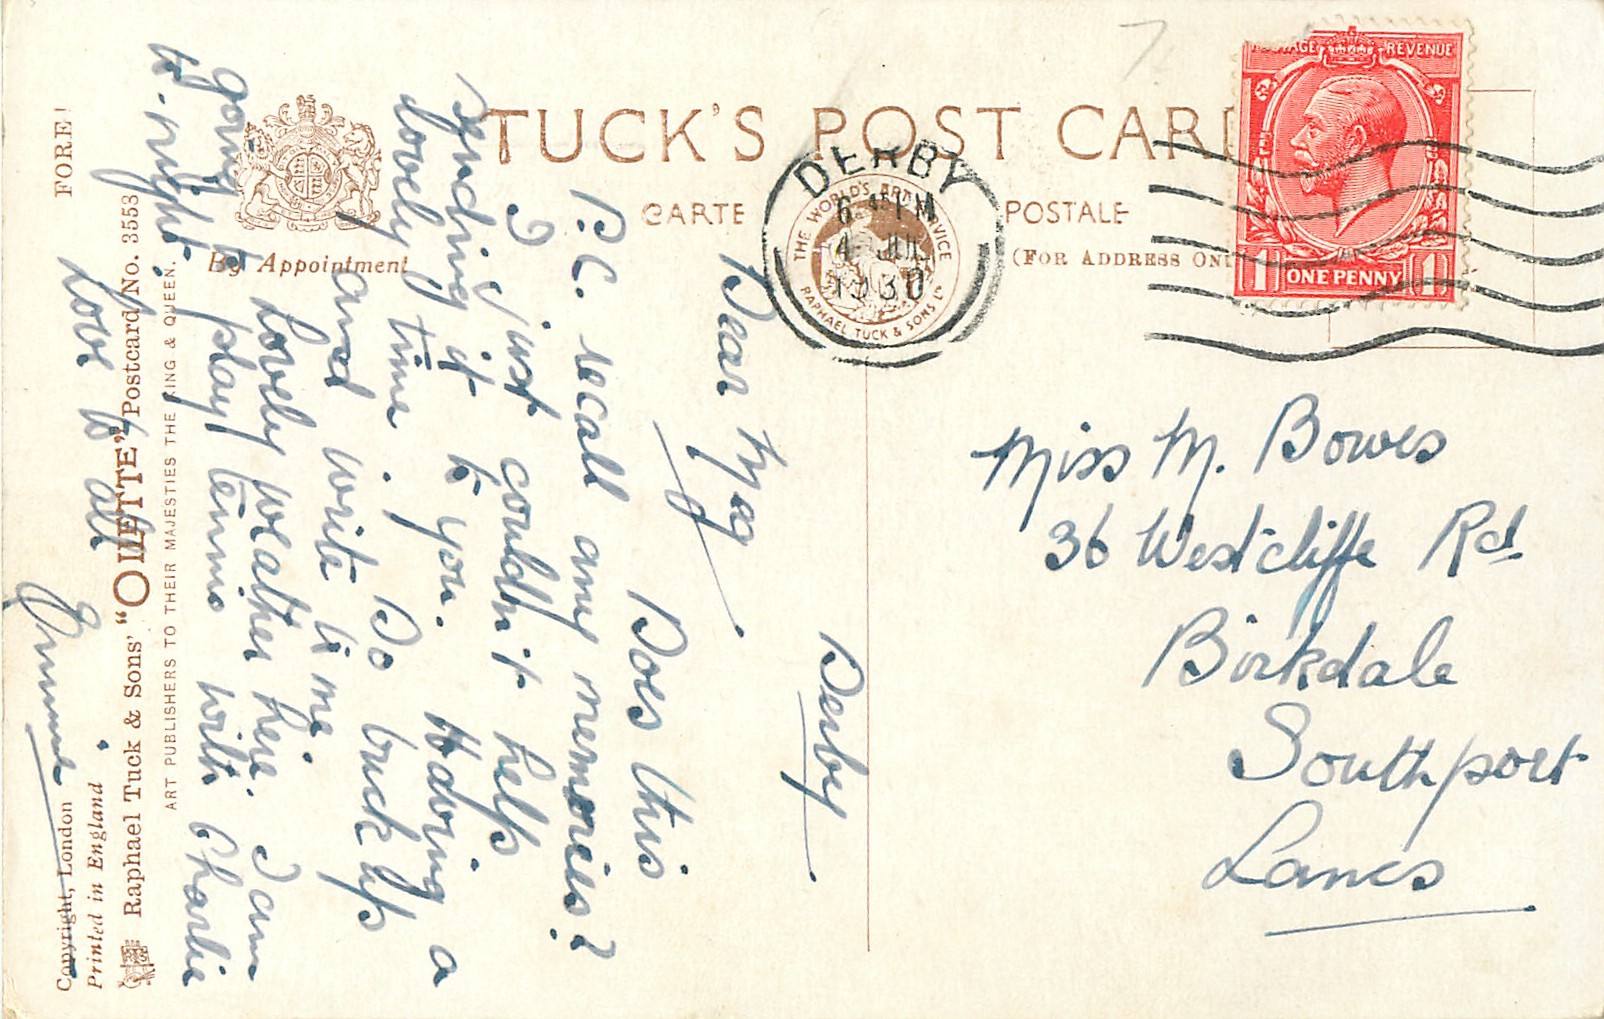 TUCK'S POST CARD
CARTE POSTALE
(FOR ADDRESS ONL
By Appointment
POSTAGE REVENUE
1 ONE PENNY 1
DERBY
4 JUL
1930
THE WORLD'S ART SERVICE
RAPHAEL TUCK & SONS Ld
Miss M. Bowes
36 Westcliffe Rd.
Birkdale
Southport
Lancs
Derby.
Dear Mag,
Does this
P.C. recall any memories?
I just couldn't help
sending it to you. Having a
lovely time. Do buck up
and write to me.
Lovely weather here. I am
going to play tennis with Charlie
to-night.
Love to all
FORE!
Postcard No. 3553
Raphael Tuck & Sons' "OILETTE"
ART PUBLISHERS TO THEIR MAJESTIES THE KING & QUEEN.
Copyright, London
Printed in England